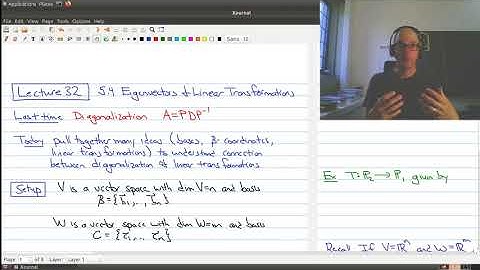 Applications Places
Xournal
File Edit View Journal Tools Options Help
Sans 12
Lecture 32 5.4 Eigenvectors & Linear Transformations
Last time Diagonalization A=PDP⁻¹
Today pull together many ideas (bases, β-coordinates,
linear transformations) to understand connection
between diagonalization & linear transformations
Setup V is a vector space with dim V=n and basis
B = {b₁, ..., bₙ}
W is a vector space with dim W=m and basis
C = {c₁, ... cₘ}
Ex T: P₂ → P, given by
Recall If V=Rⁿ and W=Rᵐ
Page 1 of 8 Layer: Layer 1